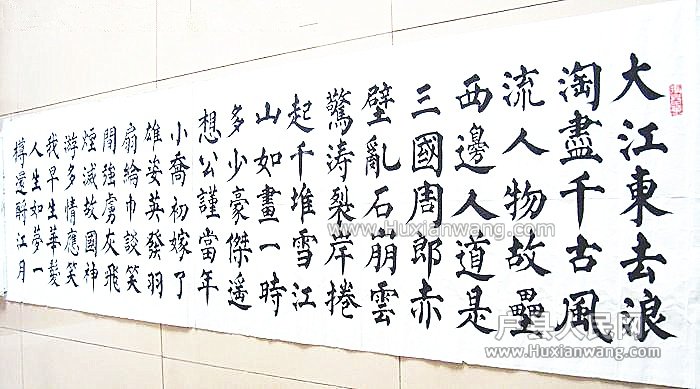 大江東去浪
淘盡千古風
流人物故壘
西邊人道是
三國周郎赤
壁亂石崩雲
驚涛裂岸捲
起千堆雪江
山如畫一時
多少豪傑遥
想公謹當年
小喬初嫁了
雄姿英發羽
扇綸巾談笑
間強虜灰飛
煙滅故國神
游多情應笑
我早生華髮
人生如夢一
樽還酹江月
www.Huxianwang.com
户县人民网
www.Huxianwang.com